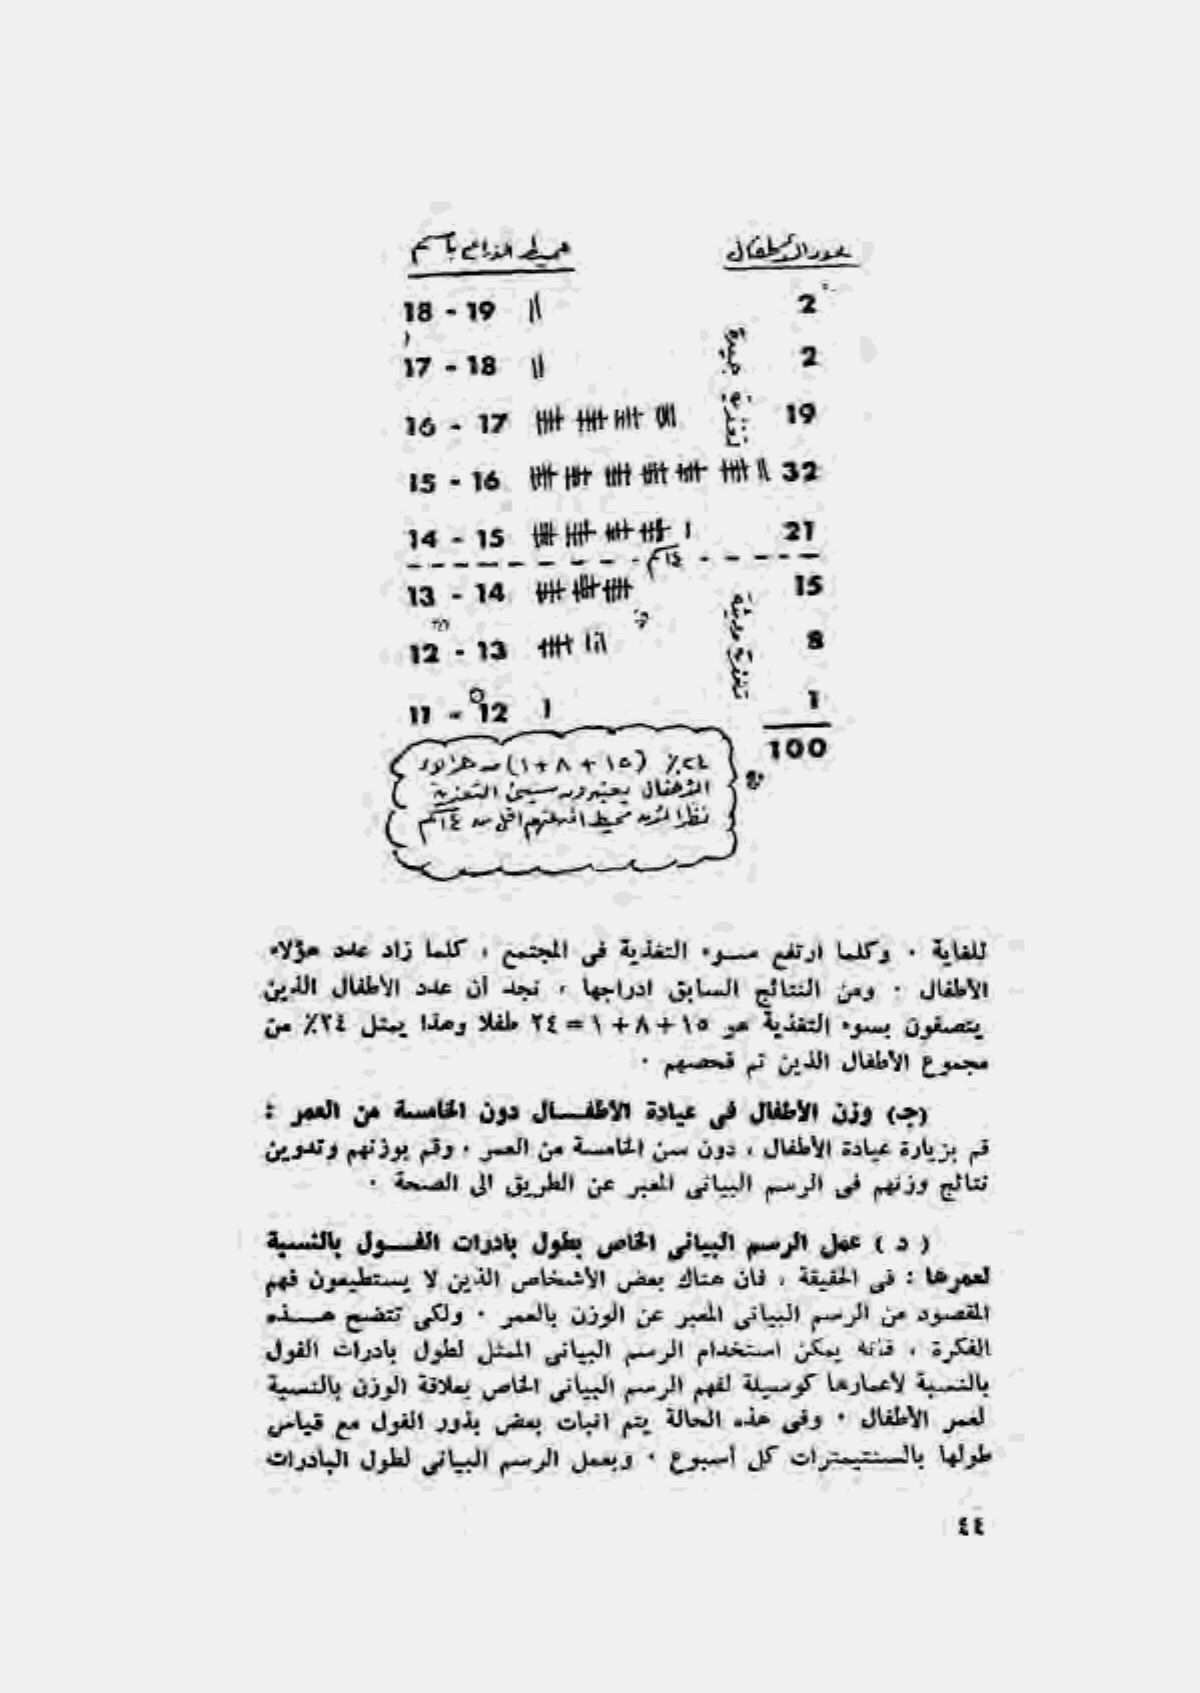 عدد الأطفال محيط الذراع بالسم
18 - 19 || 2
17 - 18 || 2
16 - 17 19
15 - 16 32
14 - 15 21
١٤سم
13 - 14 15
12 - 13 8
11 - 12 1
100
تغذية جيدة
تغذية رديئة
٢٤٪ (١٥ + ٨ + ١) من هؤلاء
الأطفال يعتبرون سيئى التغذية
نظرا لأن محيط أذرعتهم أقل من ١٤سم
للغاية ٠ وكلما ارتفع ســوء التغذية فى المجتمع ، كلما زاد عدد هؤلاء
الأطفال ٠ ومن النتائج السابق ادراجها ، نجد أن عدد الأطفال الذين
يتصفون بسوء التغذية هو ١٥ + ٨ + ١ = ٢٤ طفلا وهذا يمثل ٢٤٪ من
مجموع الأطفال الذين تم فحصهم ٠
(جـ) وزن الأطفال فى عيادة الأطفــال دون الخامسة من العمر :
قم بزيارة عيادة الأطفال ، دون سن الخامسة من العمر ، وقم بوزنهم وتدوين
نتائج وزنهم فى الرسم البيانى المعبر عن الطريق الى الصحة ٠
( د ) عمل الرسم البيانى الخاص بطول بادرات الفــول بالنسبة
لعمرها : فى الحقيقة ، فان هناك بعض الأشخاص الذين لا يستطيعون فهم
المقصود من الرسم البيانى المعبر عن الوزن بالعمر ٠ ولكى تتضح هــذه
الفكرة ، فانه يمكن استخدام الرسم البيانى الممثل لطول بادرات الفول
بالنسبة لأعمارها كوسيلة لفهم الرسم البيانى الخاص بعلاقة الوزن بالنسبة
لعمر الأطفال ٠ وفى هذه الحالة يتم انبات بعض بذور الفول مع قياس
طولها بالسنتيمترات كل أسبوع ٠ وبعمل الرسم البيانى لطول البادرات
٤٤